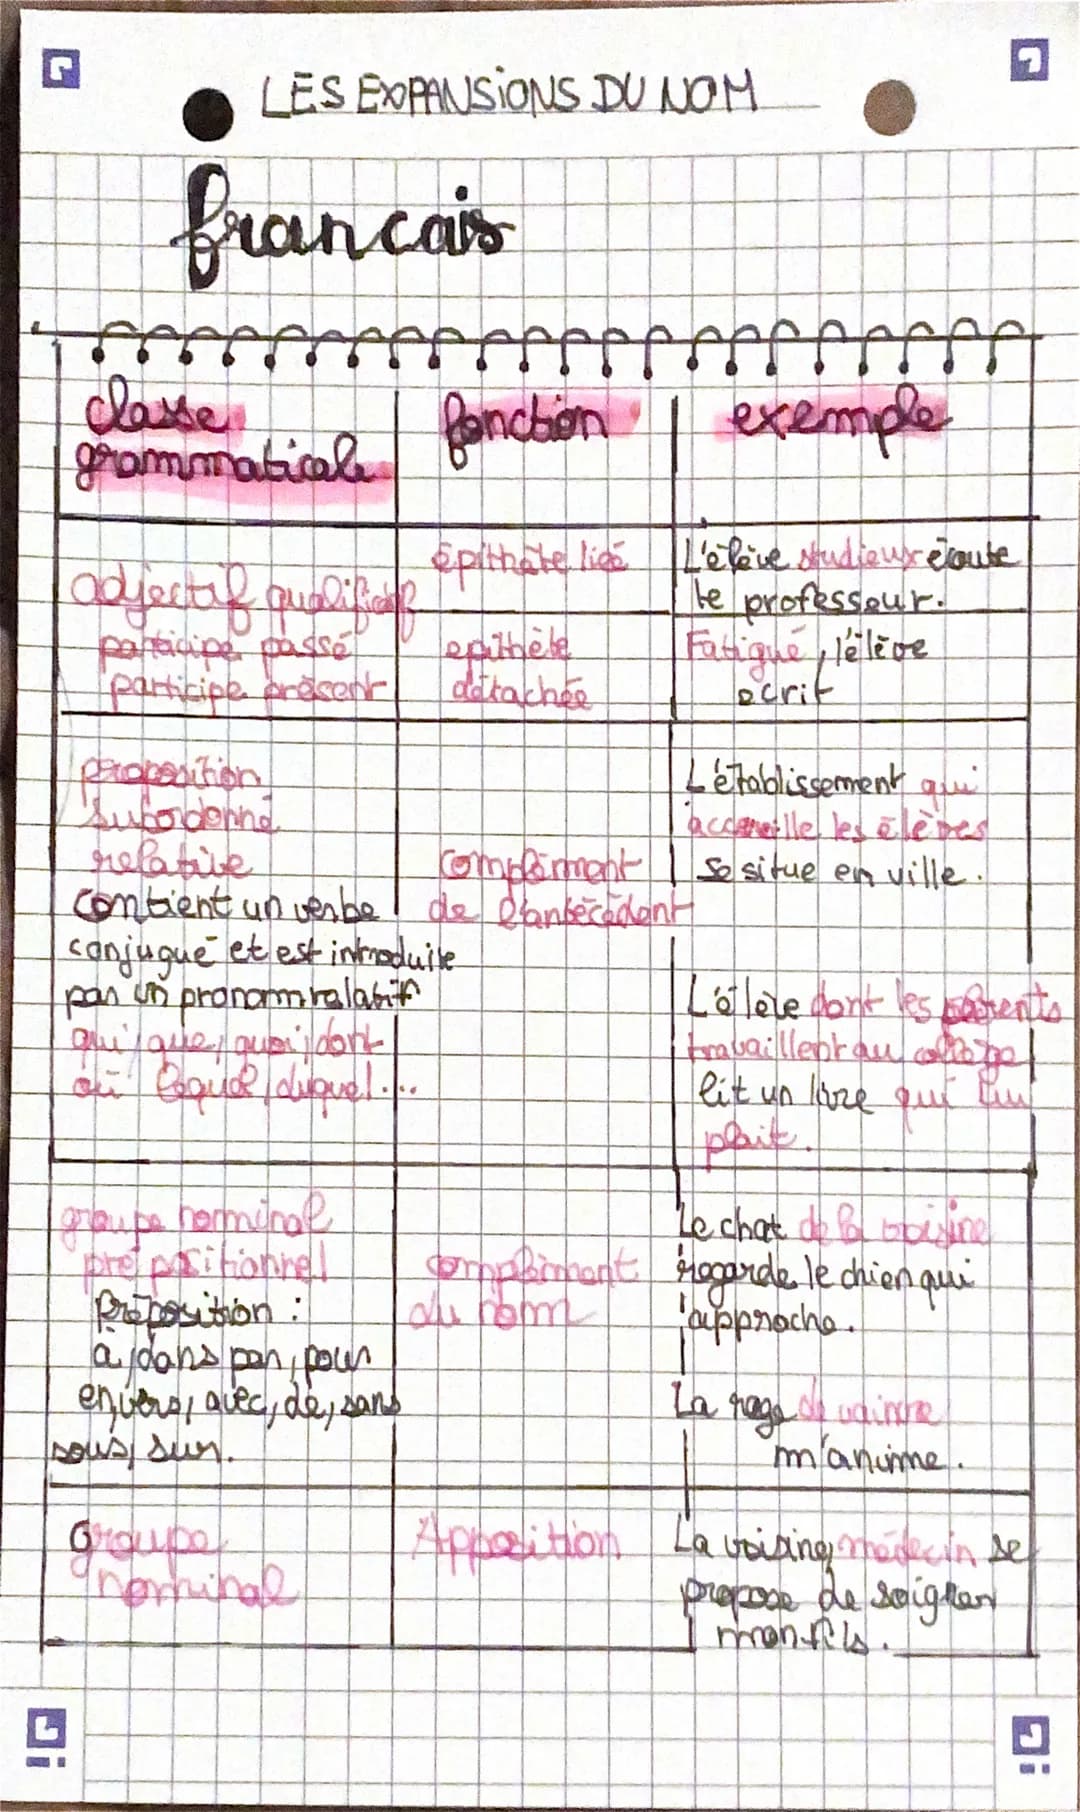 LES EXPANSIONS DU NOM
francais
classe
grammaticale
fonction
exemple
adjectif qualificatif
participe passé
participe présent
épithète liée
L'élève studieux écoute
le professeur.
epithète
détachée
Fatigué, l'élève
ecrit
proposition
subordonné
relative
contient un verbe
conjugué et est introduite
par un pronom relatif
qui, que, quoi, dont
où lequel, duquel....
complément
de l'antécédent
L'établissement qui
accueille les élèves
se situe en ville.
L'élève dont les parents
travaillent au collège
lit un livre qui lui
plait.
groupe nominal
prépositionnel
préposition :
à, dans par, pour
en, vers, avec, de, sans
sous, sur.
complément
du nom
Le chat de la voisine
regarde le chien qui
l'approche.
La rage de vaincre
m'anime.
Groupe
nominal
Apposition
La voisine, médecin se
propose de soigner
mon fils.